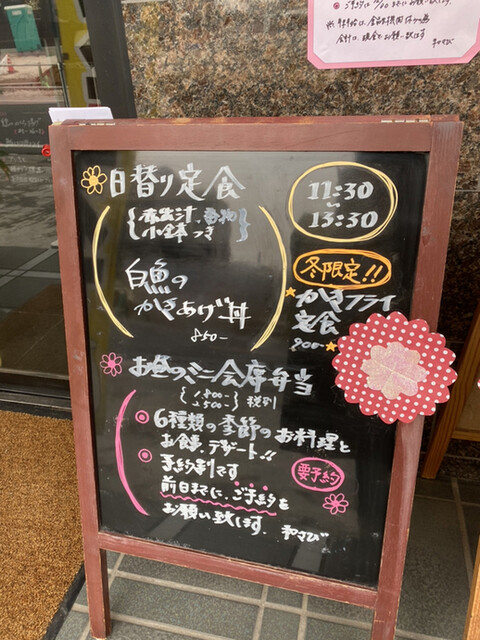 ご予約は、
までにお願い致します。
会計は、現金でお願い致します 和さび
日替り定食
11:30
〜
13:30
小鉢つき
白魚の
かきあげ丼
850-
冬限定!!
かきフライ
定食
900-
お昼のミニ会席弁当
1,800-
2,500-
税別
6種類の季節のお料理と
お食事、デザート!!
予約制です
要予約
前日までに、ご予約を
お願い致します。 和さび